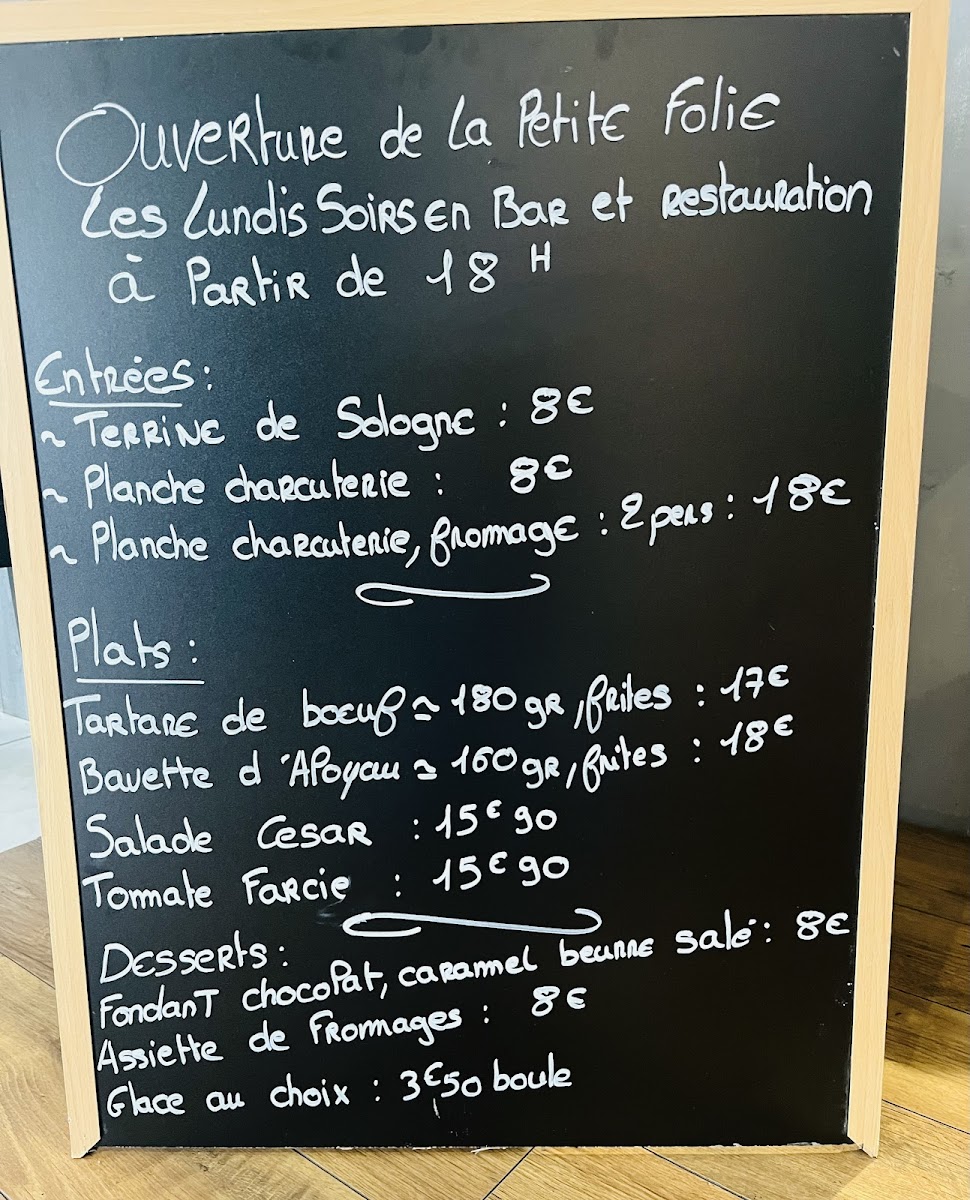 Ouverture de la Petite Folie
Les Lundis Soirs en Bar et restauration
à Partir de 18 H
Entrées :
~ Terrine de Sologne : 8€
~ Planche charcuterie : 8€
~ Planche charcuterie, fromage : 2 pers : 18€
Plats :
Tartare de boeuf ≃ 180 gr, frites : 17€
Bavette d'Aloyau ≃ 160 gr, frites : 18€
Salade Cesar : 15€90
Tomate Farcie : 15€90
Desserts :
Fondant chocolat, caramel beurre salé : 8€
Assiette de Fromages : 8€
Glace au choix : 3€50 boule